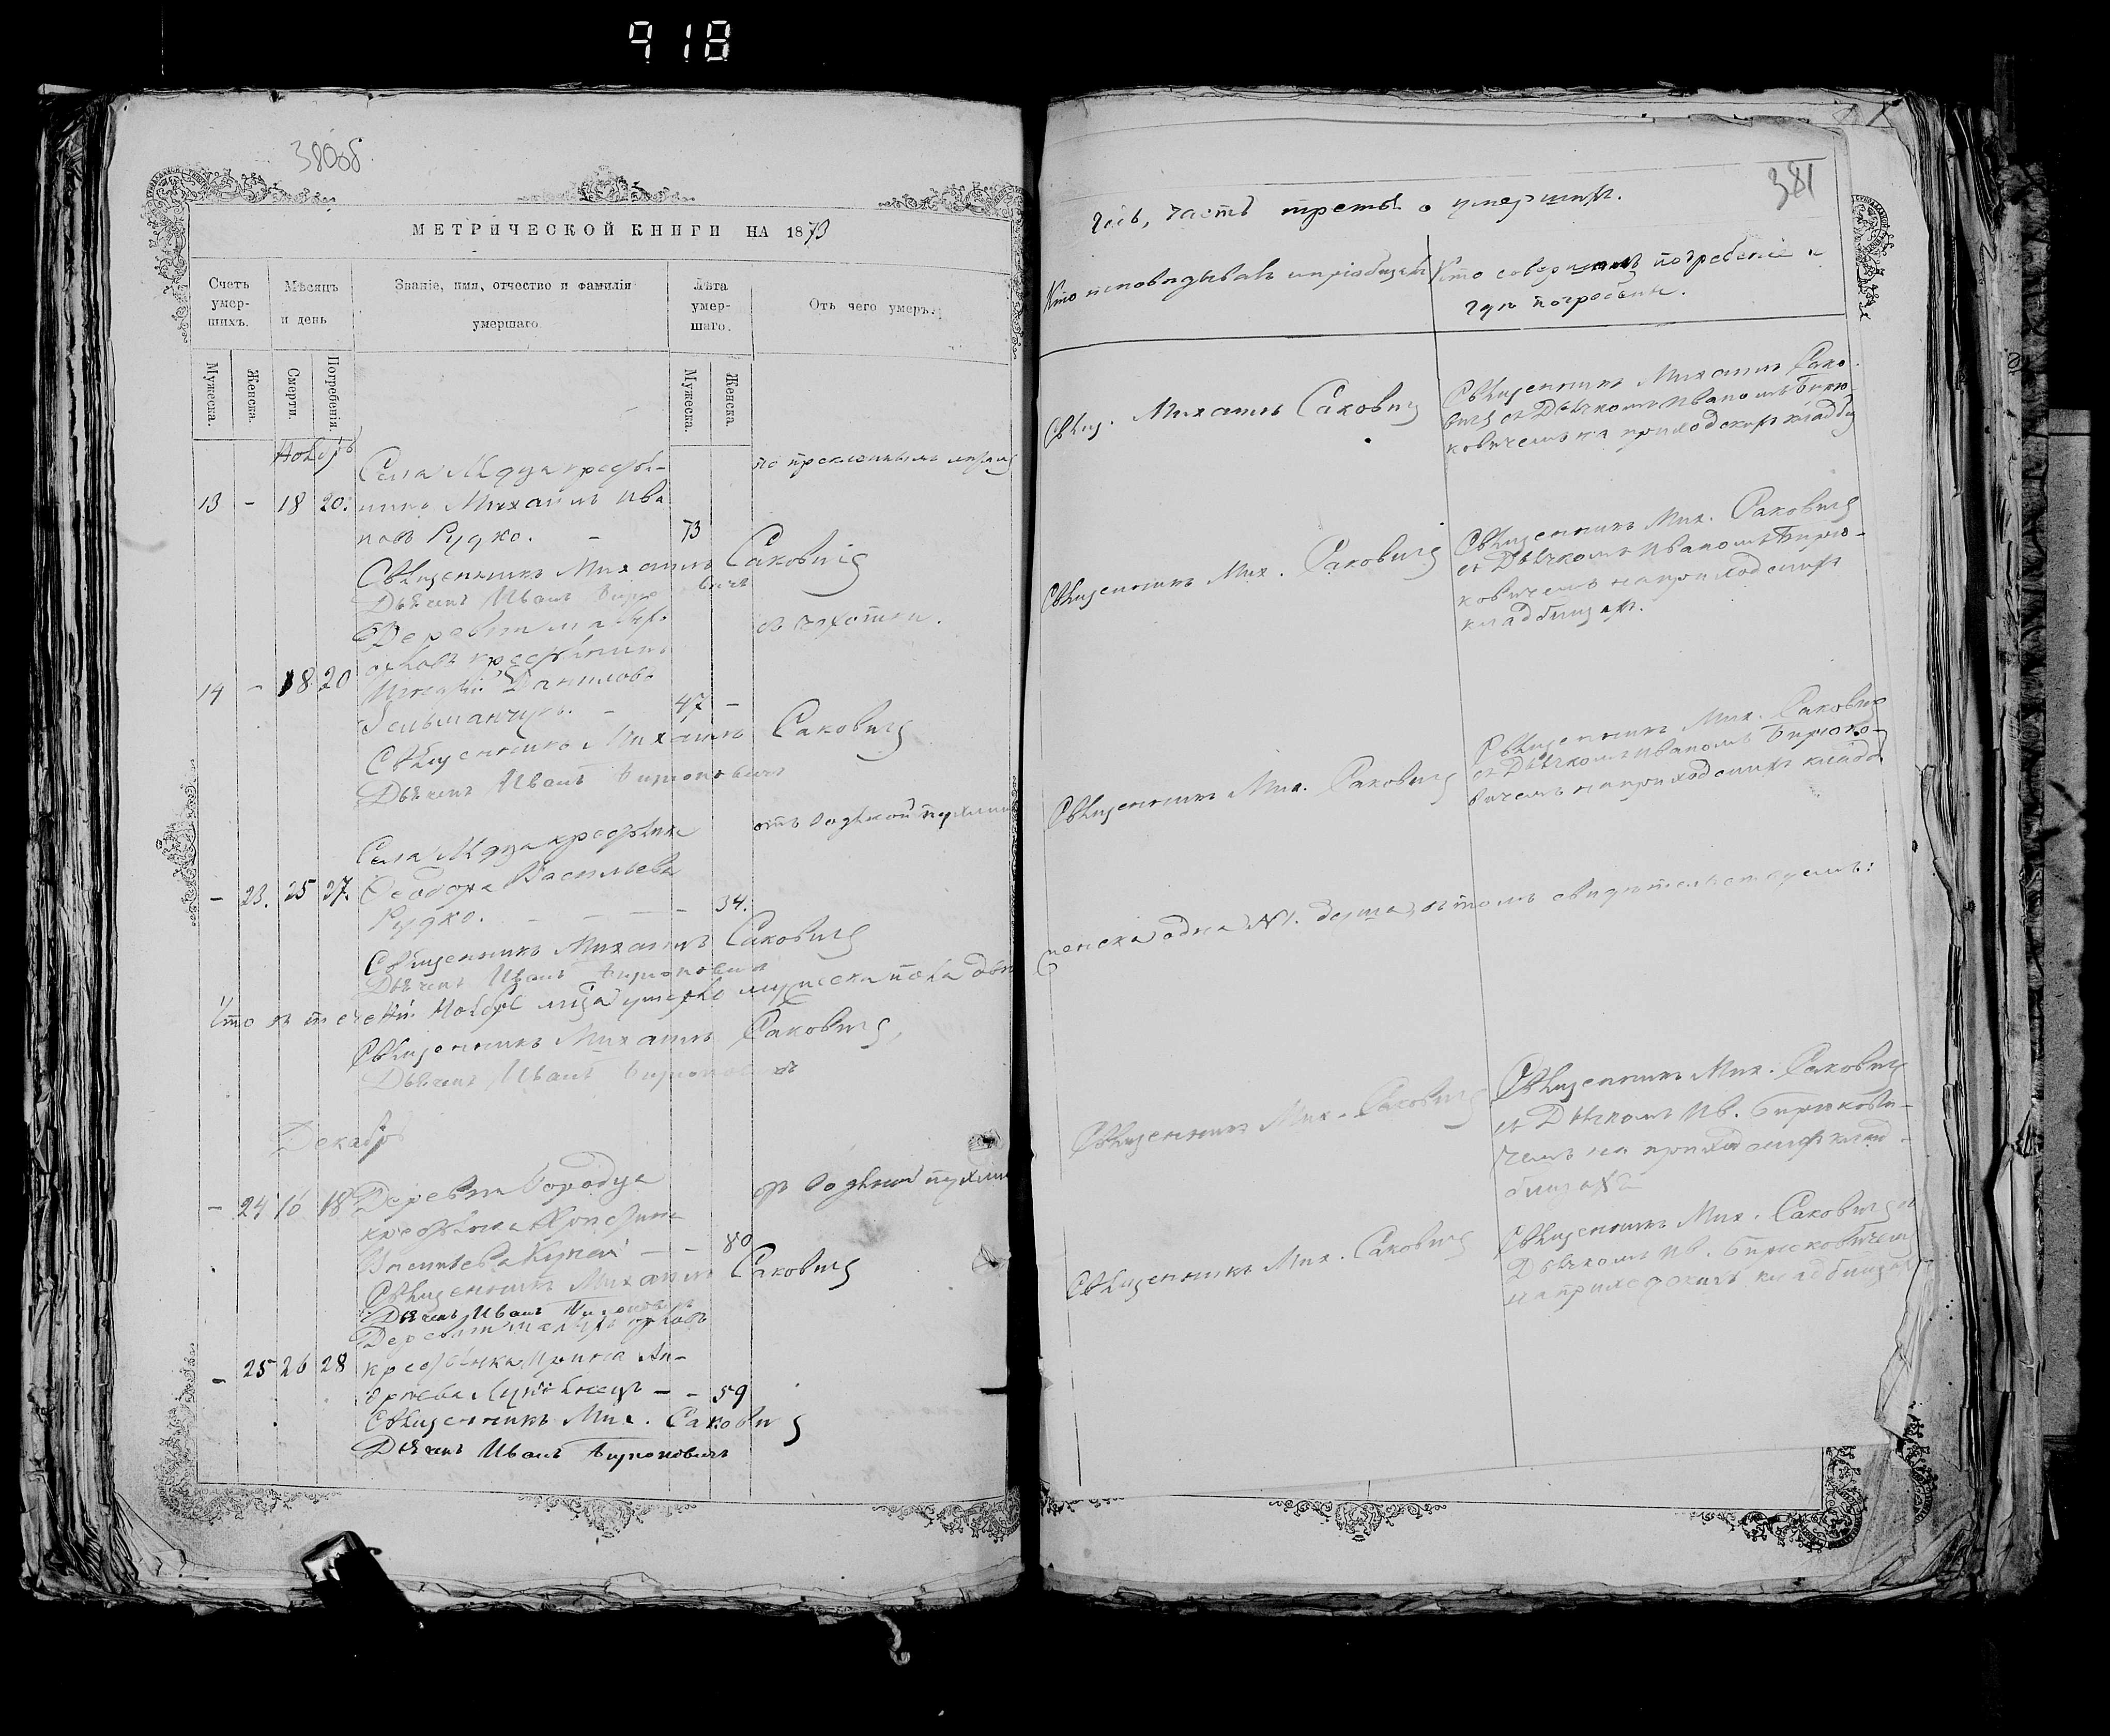 918
380об
МЕТРИЧЕСКОЙ КНИГИ НА 1873
Счетъ умер- шихъ.
Мѣсяцъ и день
Званіе, имя, отчество и фамилія умершаго.
Лѣта умер- шаго.
Отъ чего умеръ.
Мужеска.
Женска.
Смерти.
Погребенія.
Мужеска.
Женска.
Ноябрь
Села Мдзя крестья-
13 - 18 20. нинъ Михаилъ Ива
новъ Рудко. - 73
Священникъ Михаилъ Саковичъ
Дьячекъ Иванъ Бирюковичъ
Деревни
въ чахотки.
крестьянинъ
14 - 18 20 Даниловъ
47 -
Священникъ Михаилъ Саковичъ
Дьячекъ Иванъ Бирюковичъ
Села крестьянка
отъ водяной пухлины
- 23. 25 27. Ѳеодора Васильева
Рудко. - - - - 34.
Священникъ Михаилъ Саковичъ
Дьячекъ Иванъ Бирюковичъ
Что въ теченіи Ноября м-ца умерло мужеска пола два
Священникъ Михаилъ Саковичъ,
Дьячекъ Иванъ Бирюковичъ
Декабрь
- 24 16 18 Деревни Городца
отъ водяной пухлины
крестьянка
Васильева - - 80
Священникъ Михаилъ Саковичъ
Дьячекъ Иванъ Бирюковичъ
Деревни
- 25 26 28 крестьянка Ирина Ан-
- - 59
Священникъ Мих. Саковичъ
Дьячекъ Иванъ Бирюковичъ
381
часть третья о умершихъ.
Кто исповѣдывалъ и пріобщалъ
Кто совершалъ погребеніе и
гдѣ погребены.
Свящ. Михаилъ Саковичъ
Священникъ Михаилъ Сако-
вичъ съ Дьячкомъ Иваномъ Бирю-
ковичемъ на приходскомъ кладби
Священникъ Мих. Саковичъ
Священникъ Мих. Саковичъ
съ Дьячкомъ Иваномъ Бирю-
ковичемъ на приходскихъ
кладбищахъ.
Священникъ Мих. Саковичъ
Священникъ Мих. Саковичъ
съ Дьячкомъ Иваномъ Бирюко-
вичемъ на приходскихъ кладб
женска одна №1. душа, въ томъ свидѣтельствуемъ:
Священникъ Мих. Саковичъ
Священникъ Мих. Саковичъ
съ Дьячкомъ Ив. Бирюкови-
чемъ на приходскихъ клад-
бищахъ
Священникъ Мих. Саковичъ
Священникъ Мих. Саковичъ съ
Дьячкомъ Ив. Бирюковичемъ
на приходскихъ кладбищахъ